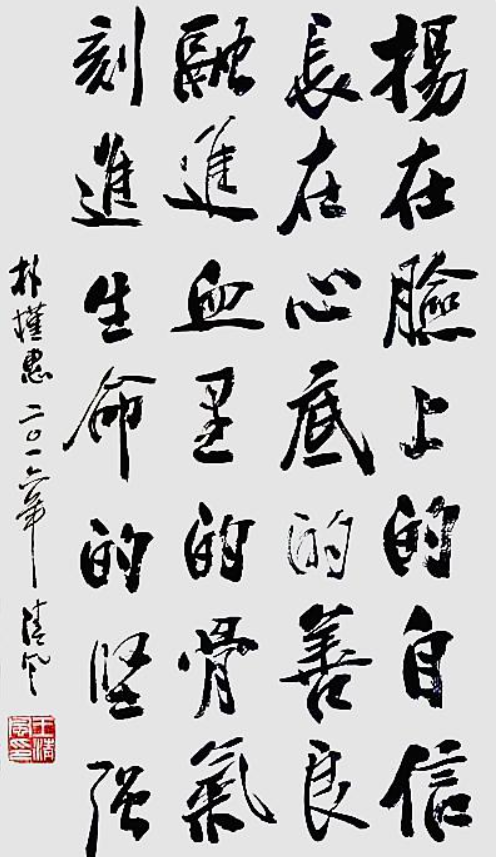 揚在臉上的自信
長在心底的善良
融進血里的骨氣
刻進生命的坚强
朴槿惠二〇一六年清风